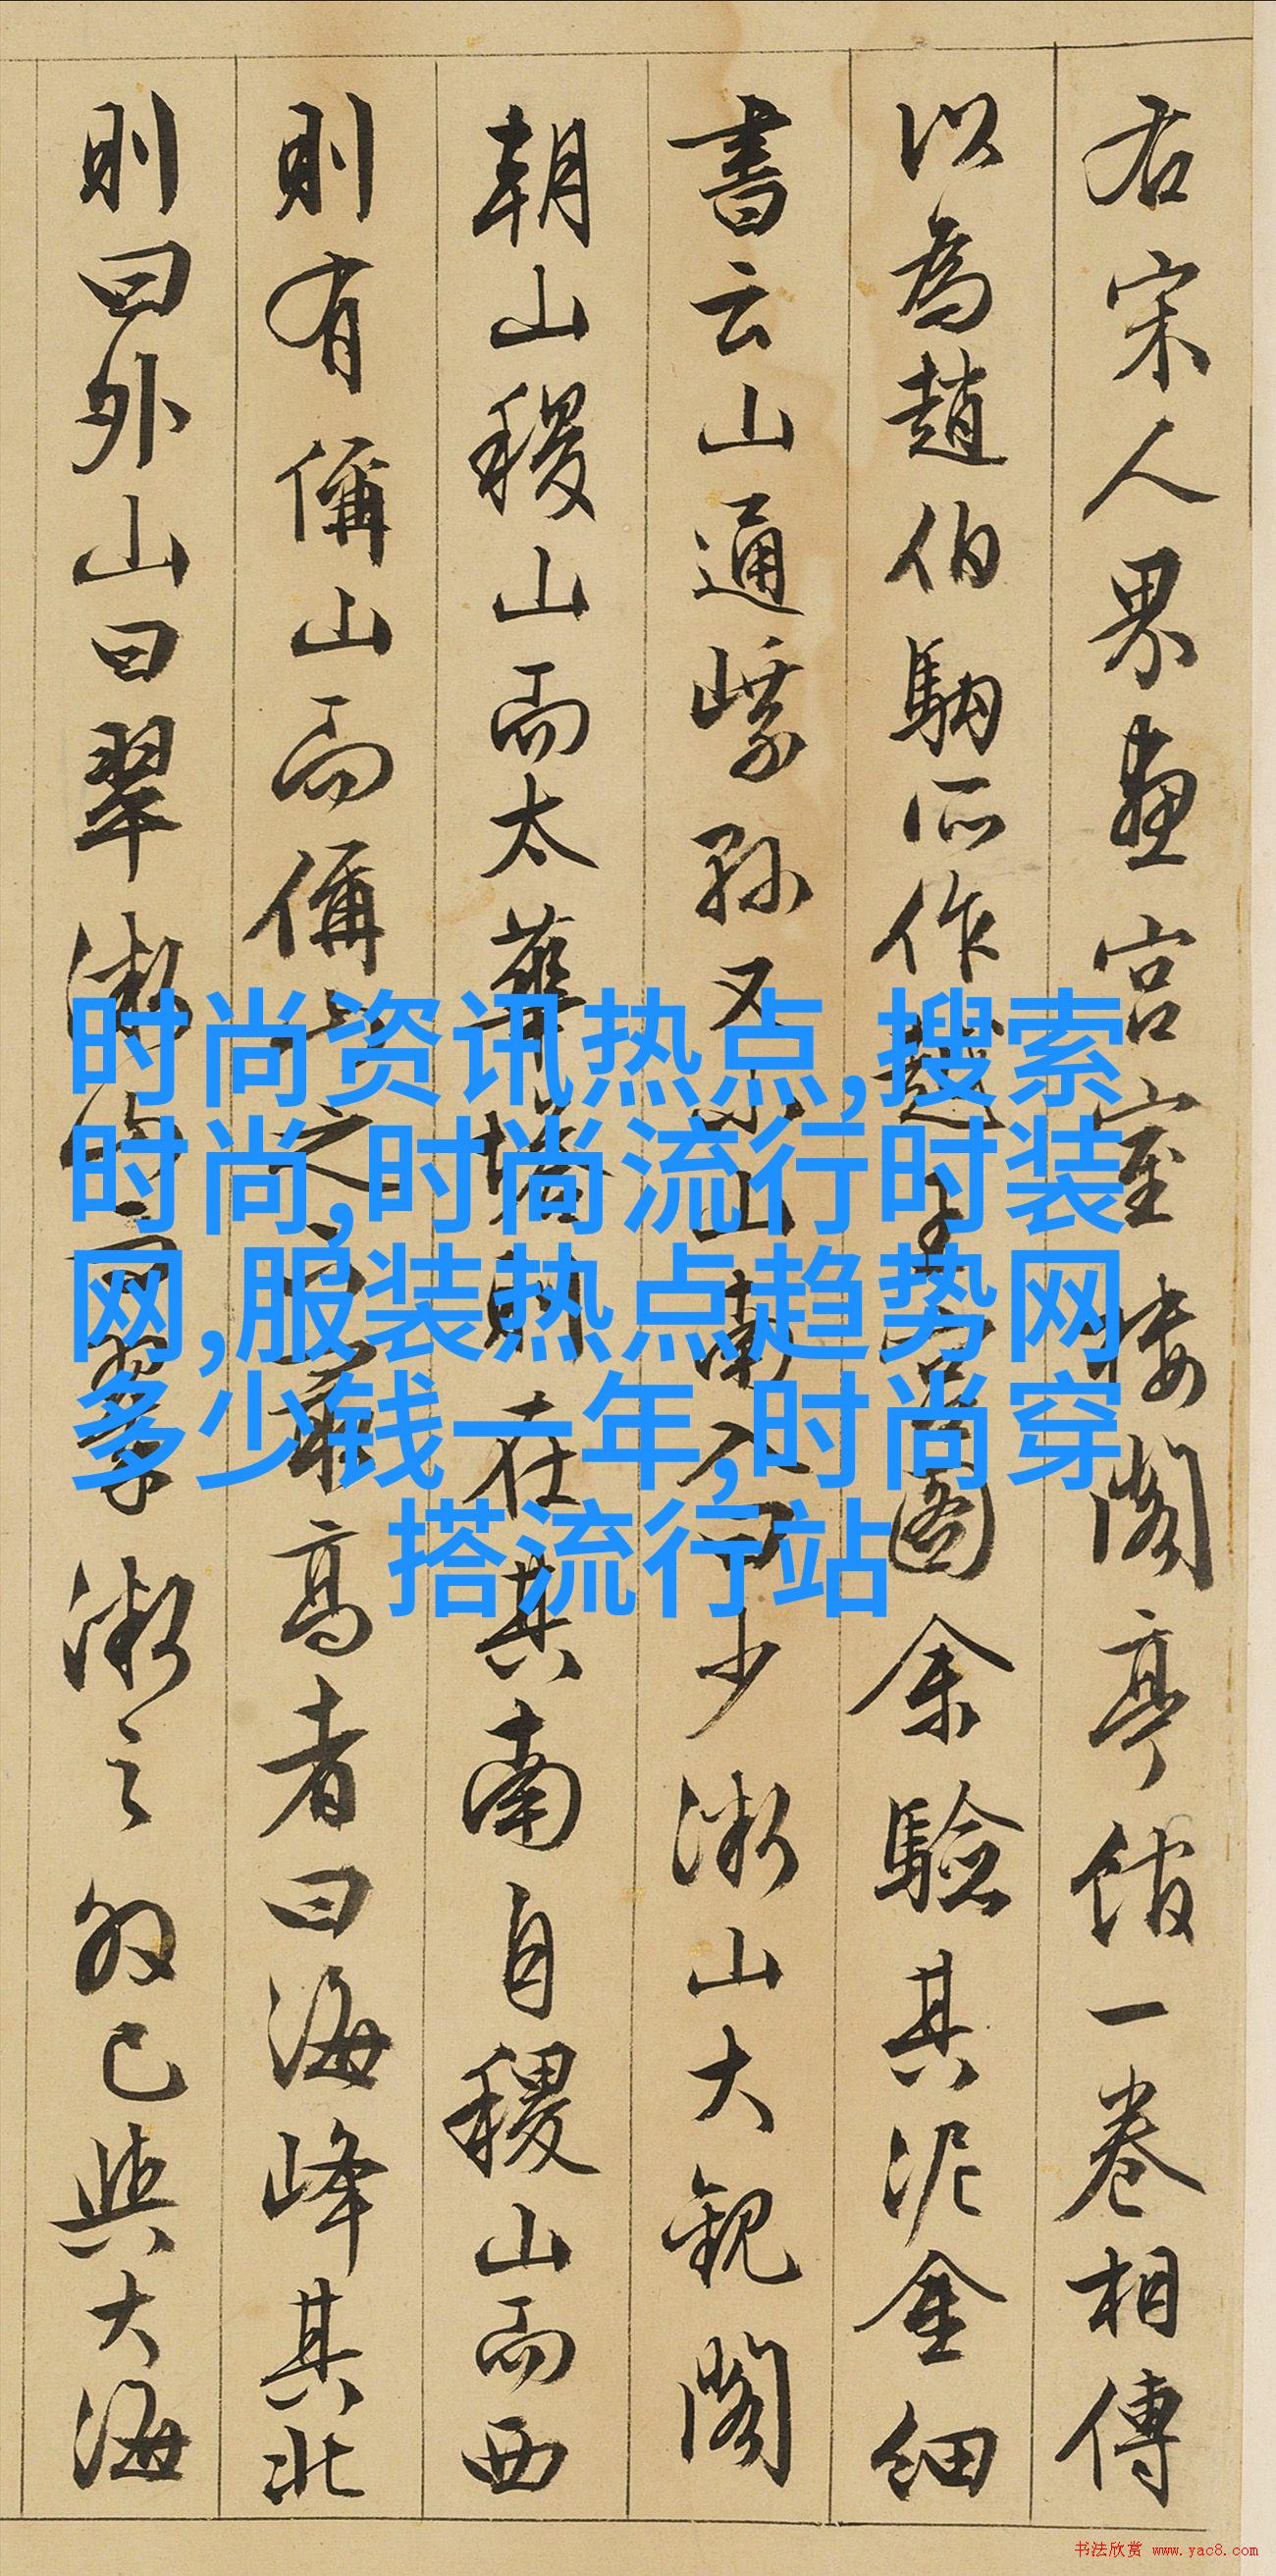 右宋人界畫宫室樓閣亭館一卷相傳
以為趙伯駒所作越王宫圖余驗其泥金細
書云山通又山南曰少山大觀閣
朝山稷山而太華塔則在其南自稷山而西
則有偁山而偁之最高者曰海峰其北
則曰外山曰翠之外已與大海
时尚资讯热点,搜索
时尚,时尚流行时装
网,服装热点趋势网
多少钱一年,时尚穿
搭流行站
书法欣赏 www.yac8.com